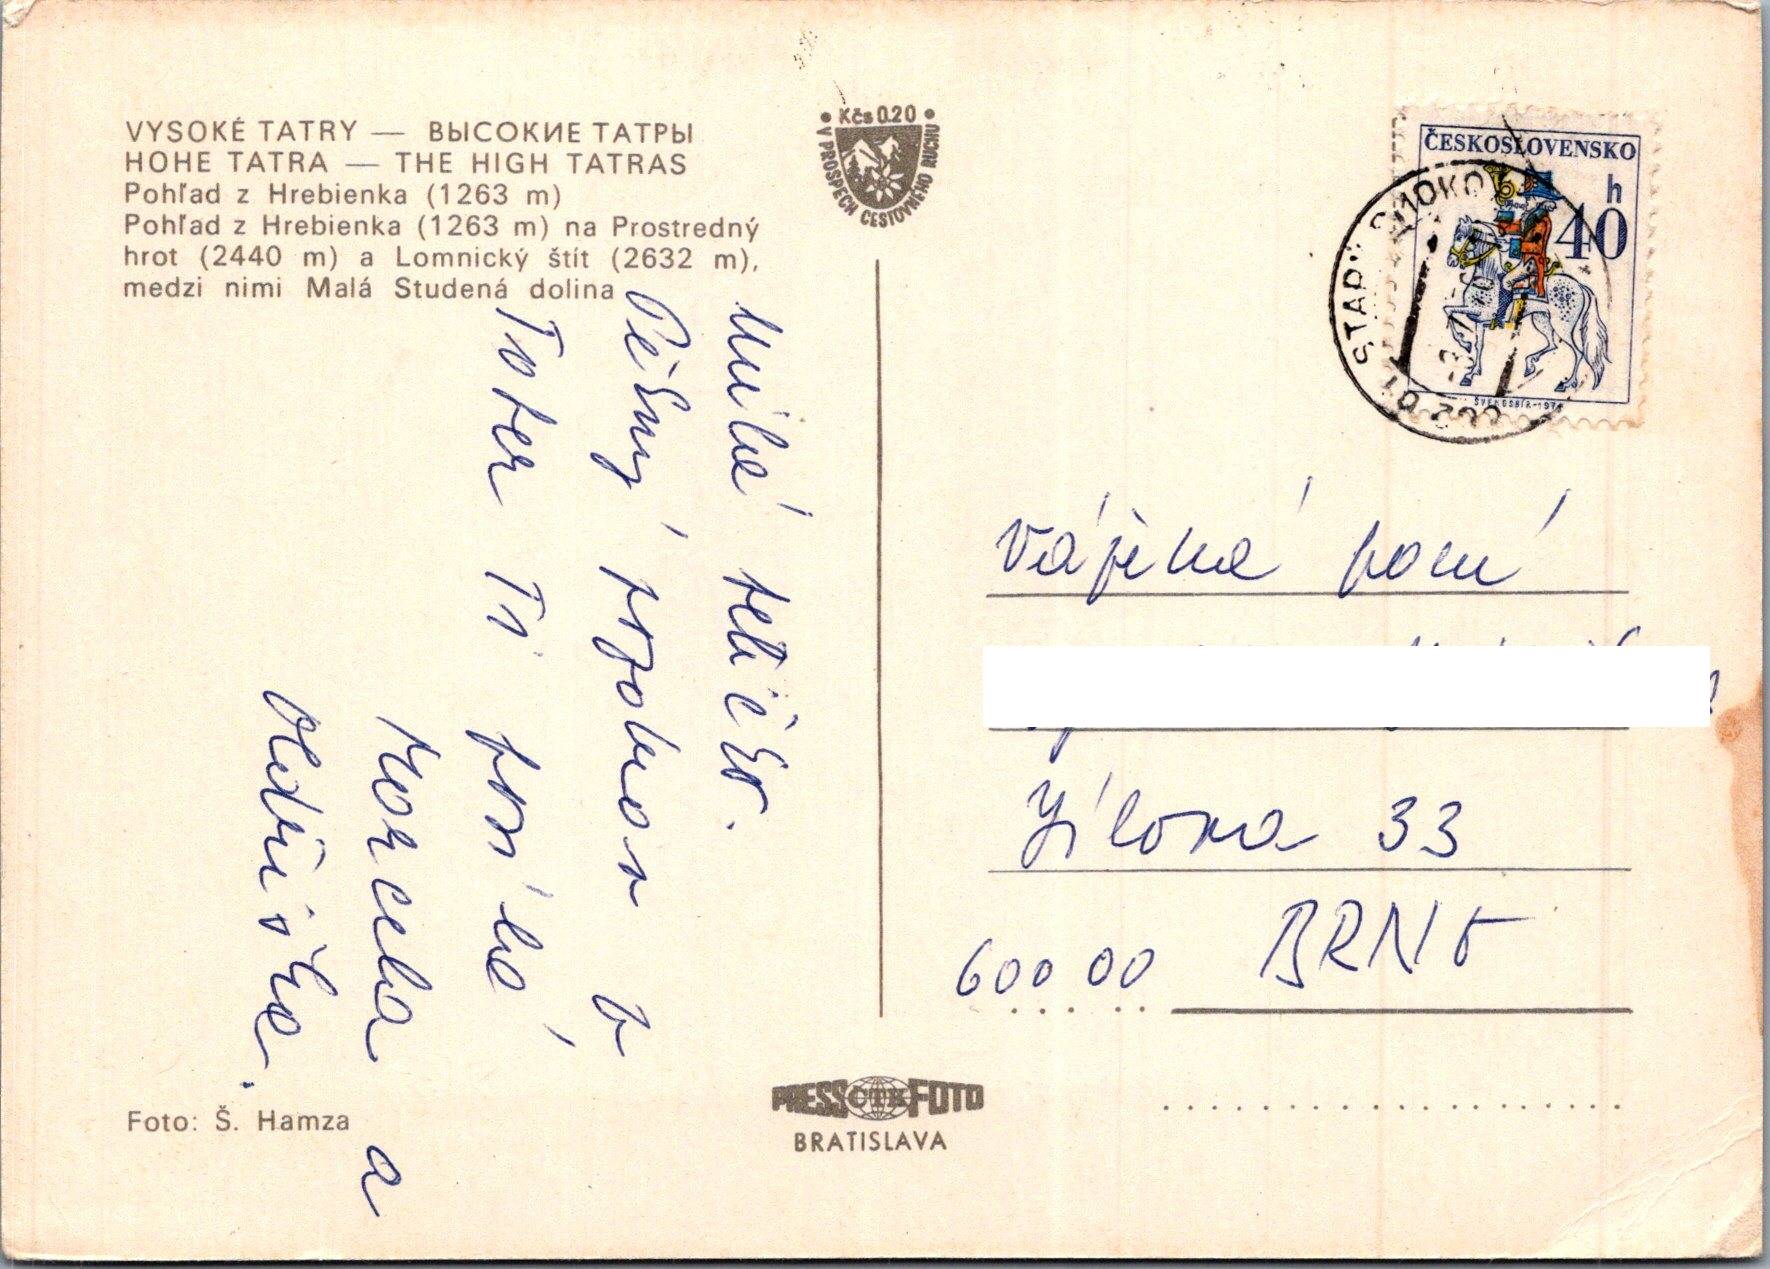 VYSOKÉ TATRY — ВЫСОКИЕ ТАТРЫ
HOHE TATRA — THE HIGH TATRAS
Pohľad z Hrebienka (1263 m)
Pohľad z Hrebienka (1263 m) na Prostredný
hrot (2440 m) a Lomnický štít (2632 m),
medzi nimi Malá Studená dolina
• Kčs 0.20 •
V PROSPECH CESTOVNÉHO RUCHU
ČESKOSLOVENSKO
h
40
ŠVENGSBÍR-1974
062 01
Milá
Pěkný pozdrav z
Tater Ti posílá
Marcela a
Vážená paní
Jílová 33
600 00 BRNO
Foto: Š. Hamza
PRESS ČTK FOTO
BRATISLAVA